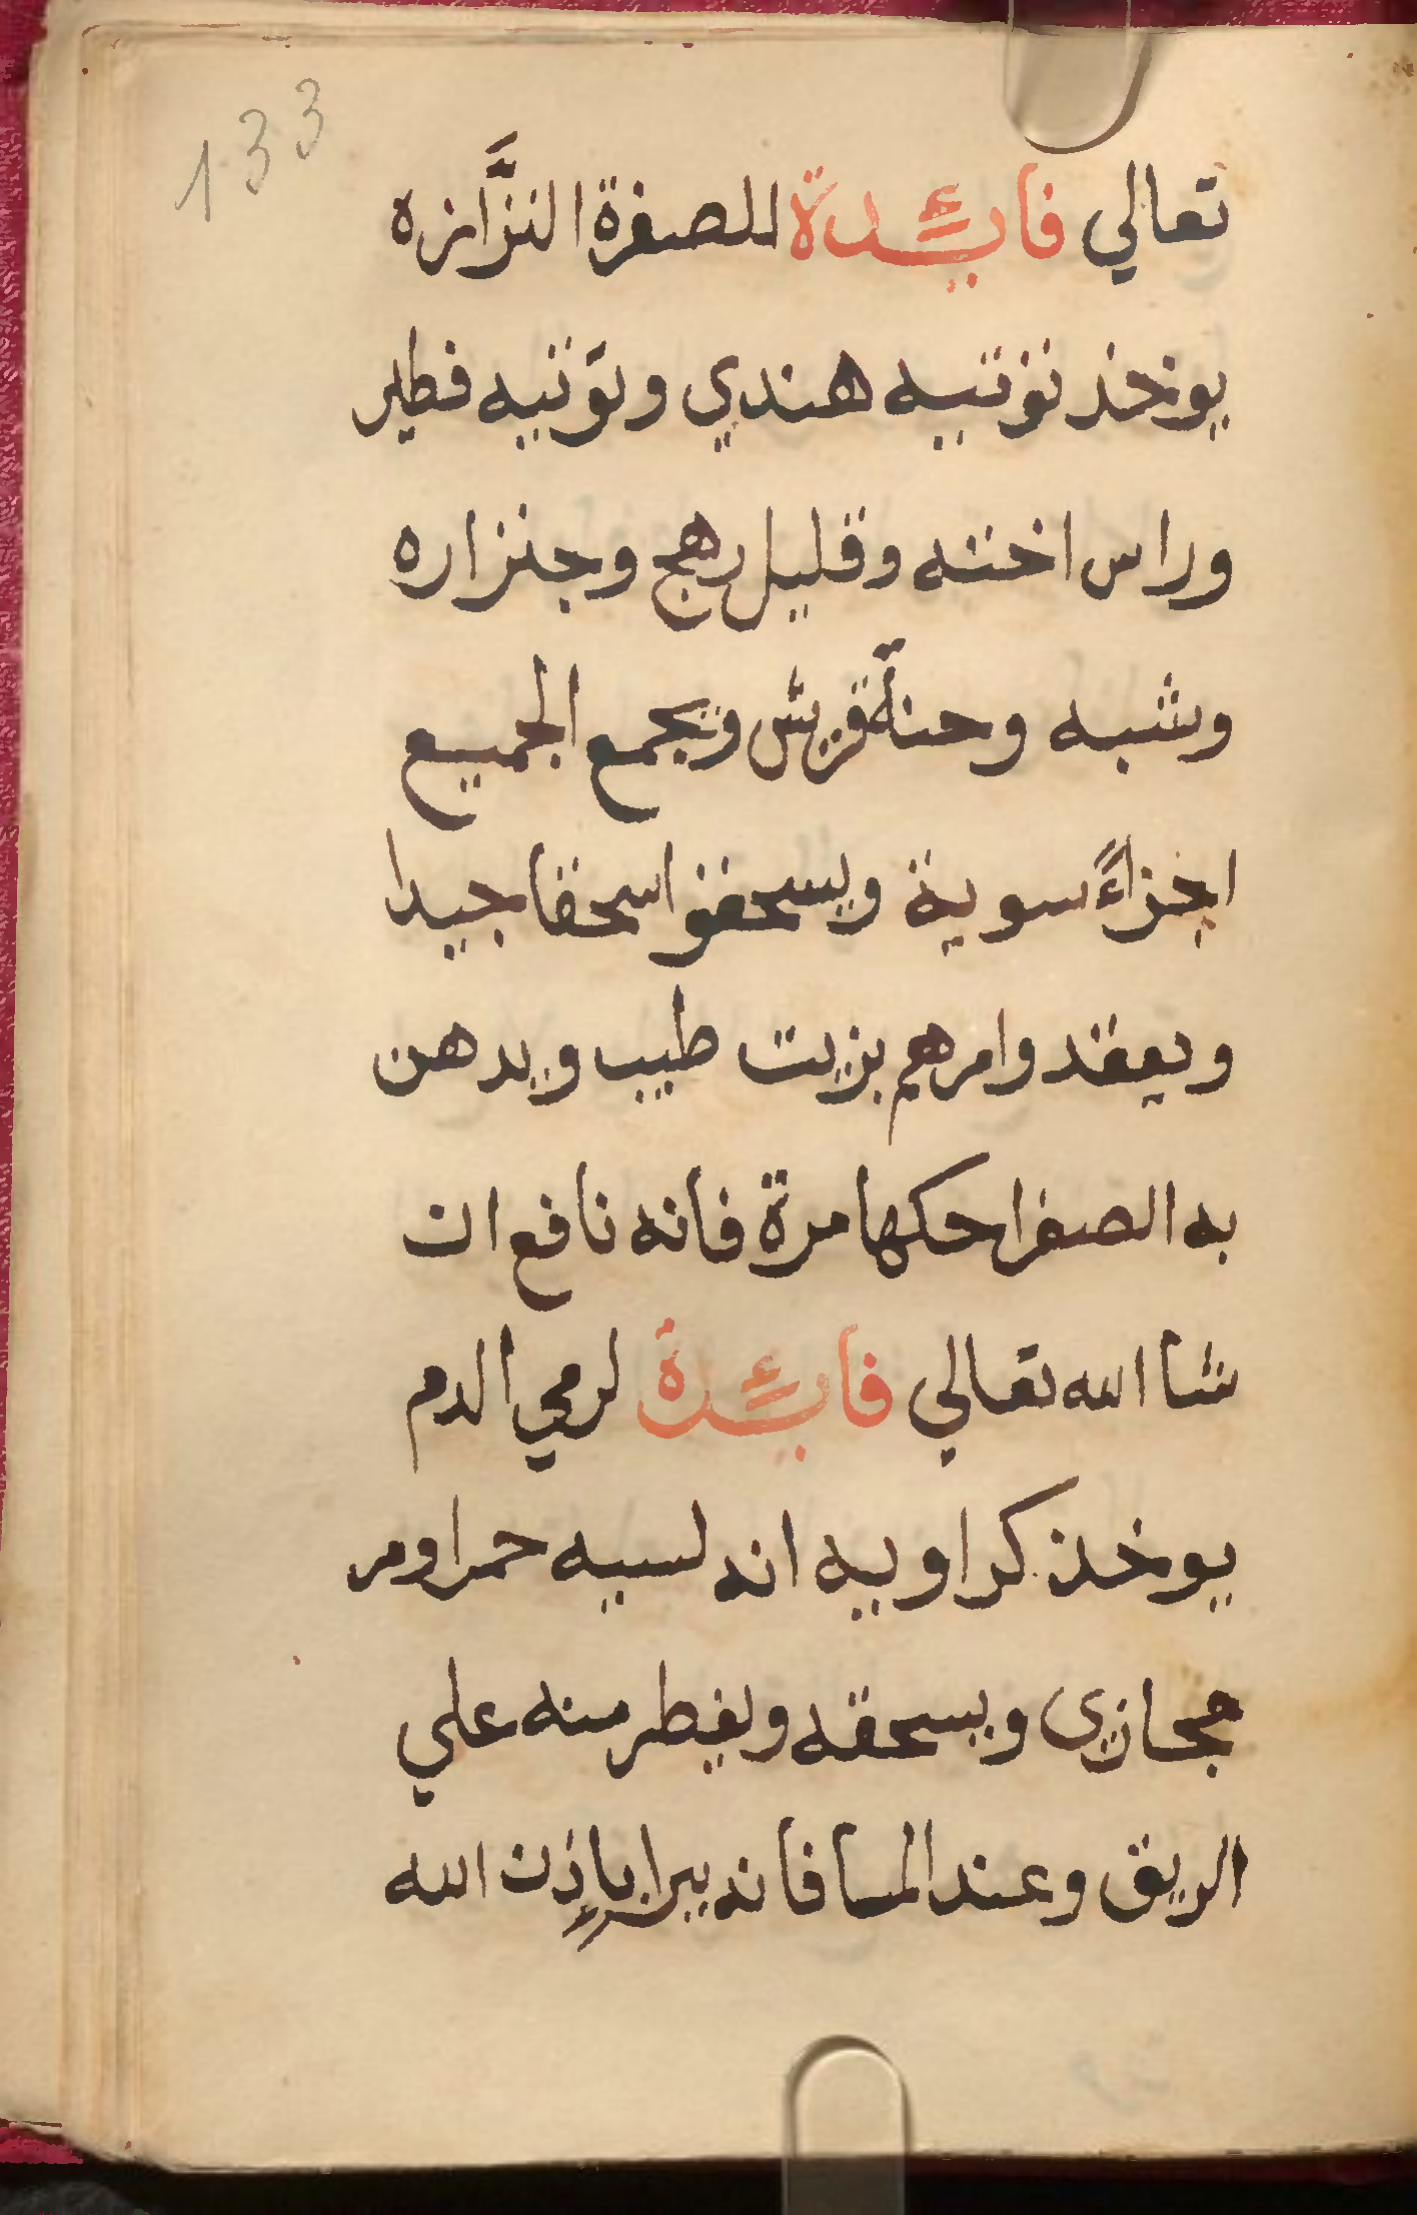 133
تعالي فائدة للصفرة النزَّازه
يوخذ توتيه هندي وتوتيه فطير
وراس اختنه وقليل رهج وجنزاره
وشبه وحنة قريش وتجمع الجميع
اجزاءً سوية ويسحقوا سحقا جيدا
ويعقد وامرهم بزيت طيب ويدهن
به الصفرا حكها مرة فانه نافع ان
شا الله تعالي فائدة لرمي الدم
يوخذ كراويه اندلسيه حمرا ومر
حجازي ويسحقه ويفطر منه علي
الريق وعند المسا فانه يبرا باذن الله